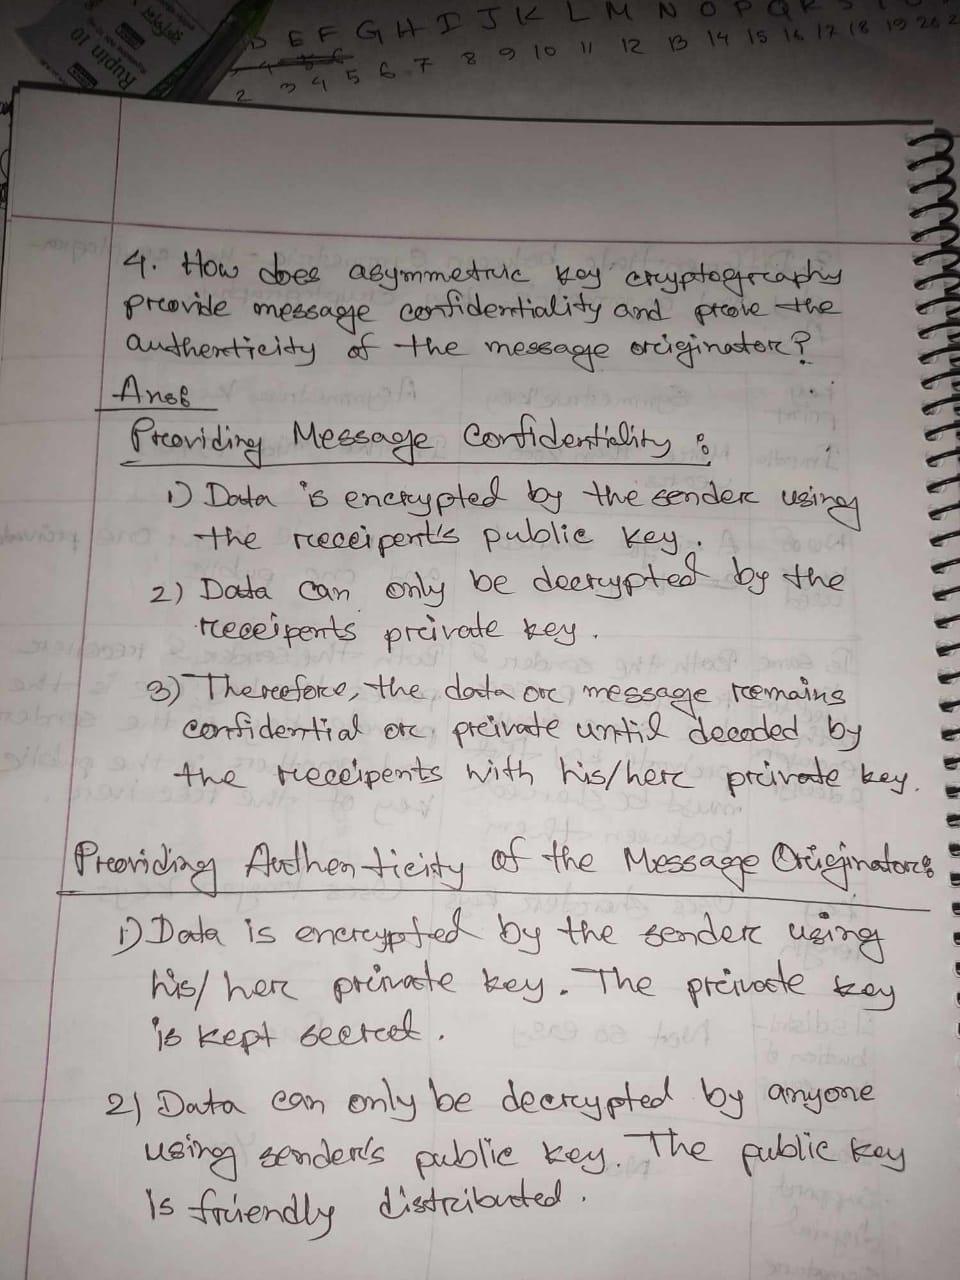 D E F G H I J K L M N O P Q R S
2 3 4 5 6 7 8 9 10 11 12 13 14 15 16 17 18 19 20 2
Rupin 10
4. How does asymmetric key cryptography
provide message confidentiality and prove the
authenticity of the message originator?
Ans:
Providing Message Confidentiality :
1) Data is encrypted by the sender using
the receipent's public key.
2) Data can only be decrypted by the
receipents private key.
3) Therefore, the data or message remains
confidential or private until decoded by
the receipents with his/her private key.
Providing Authenticity of the Message Originator:
1) Data is encrypted by the sender using
his/her private key. The private key
is kept secret.
2) Data can only be decrypted by anyone
using sender's public key. The public key
is friendly distributed.